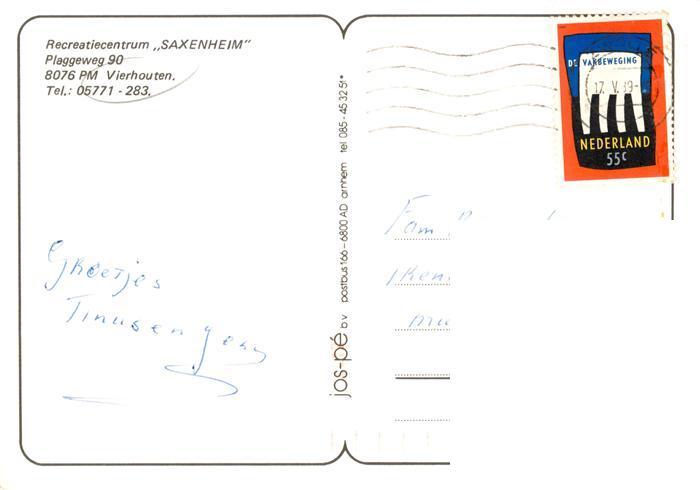 Recreatiecentrum „SAXENHEIM"
Plaggeweg 90
8076 PM Vierhouten.
Tel.: 05771 - 283.
Groetjes
Tinus en
jos-pé b v postbus 166 – 6800 AD arnhem tel 085-453251*
DE VAKBEWEGING
17. V. 89-
NEDERLAND
55c
Fam